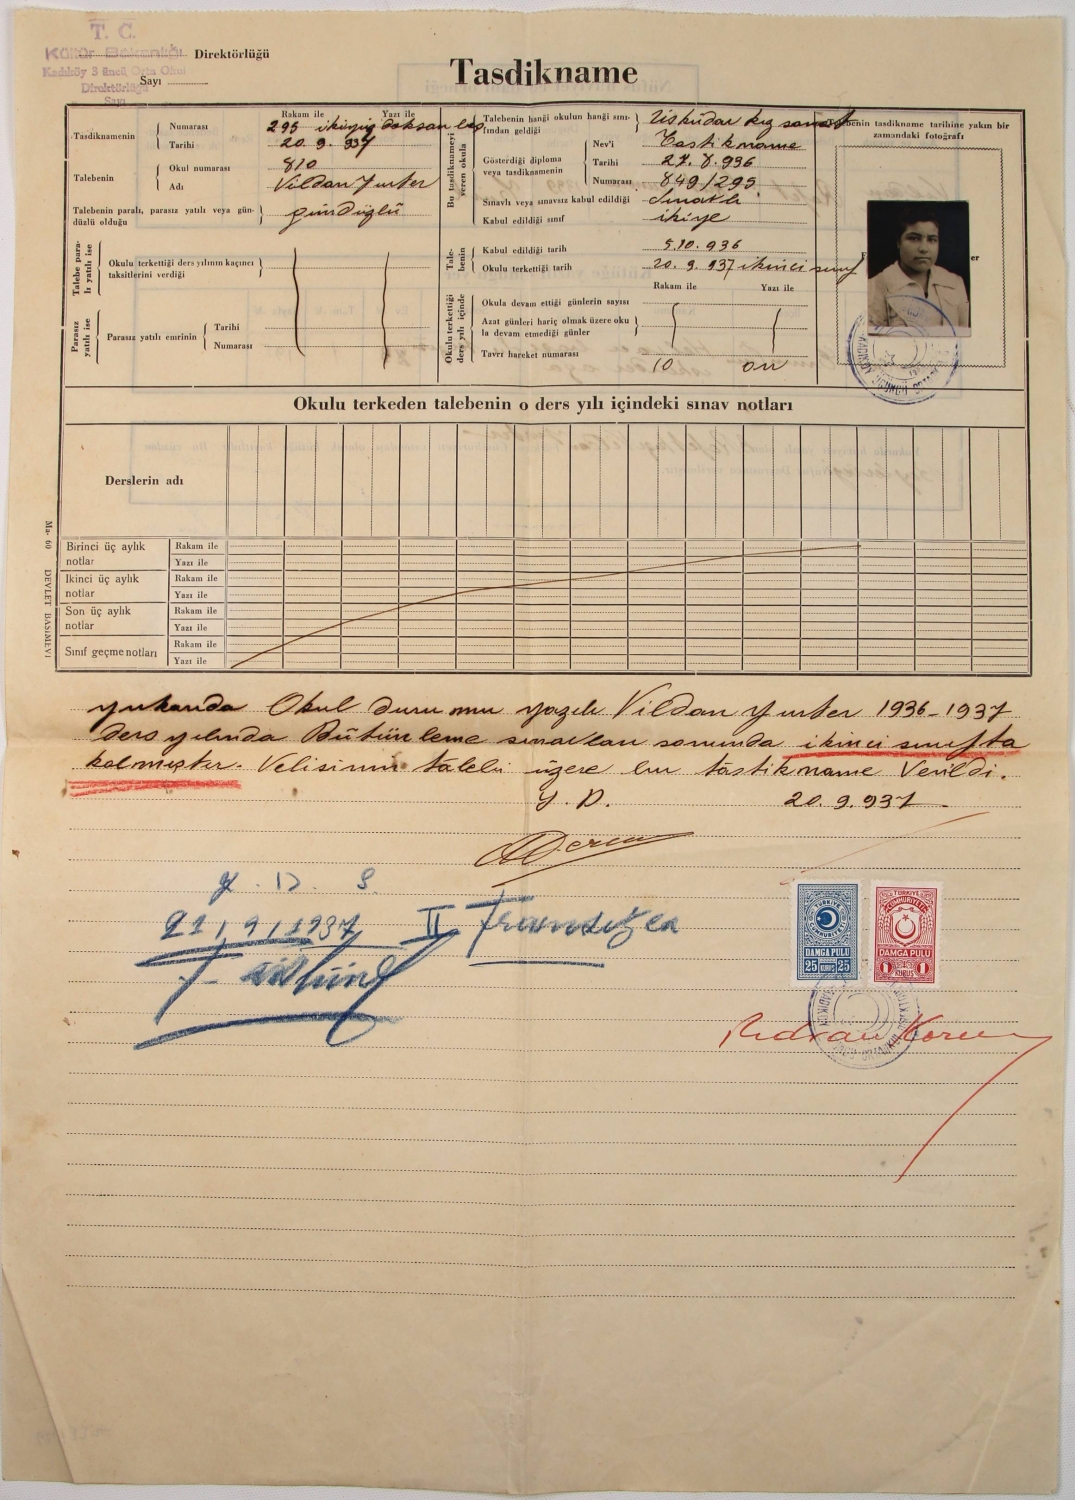 T. C.
Kültür Bakanlığı Direktörlüğü
Kadıköy 3 üncü Orta Okul
Direktörlüğü
Sayı
Sayı
Tasdikname
Rakam ile Yazı ile
Tasdiknamenin Numarası 295 ikiyüz doksan beş
Tarihi 20. 9. 937
Talebenin Okul numarası 810
Adı Vildan Yurter
Talebenin paralı, parasız yatılı veya gündüzlü olduğu gündüzlü
Talebe paralı yatılı ise
Okulu terkettiği ders yılının kaçıncı taksitlerini verdiği
Parasız yatılı ise
Parasız yatılı emrinin Tarihi
Numarası
Bu tasdiknameyi veren okula
Talebenin hangi okulun hangi sınıfından geldiği Üsküdar kız sanat
Gösterdiği diploma veya tasdiknamenin Nev'i Tastikname
Tarihi 27. 8. 936
Numarası 849/295
Sınavlı veya sınavsız kabul edildiği Sınavlı
Kabul edildiği sınıf ikiye
Talebenin
Kabul edildiği tarih 5.10.936
Okulu terkettiği tarih 20. 9. 937 ikinci sınıf
Okulu terkettiği ders yılı içinde
Rakam ile Yazı ile
Okula devam ettiği günlerin sayısı
Azat günleri hariç olmak üzere okula devam etmediği günler
Tavrı hareket numarası 10 on
zamandaki fotoğrafı
Okulu terkeden talebenin o ders yılı içindeki sınav notları
Derslerin adı
Birinci üç aylık notlar Rakam ile
Yazı ile
Ikinci üç aylık notlar Rakam ile
Yazı ile
Son üç aylık notlar Rakam ile
Yazı ile
Sınıf geçme notları Rakam ile
Yazı ile
Ma- 60 DEVLET BASIMEVİ
yukarıda Okul durumu yazılı Vildan Yurter 1936-1937
Ders yılında Bütünleme sınavları sonunda ikinci sınıfta
kalmıştır. Velisinin talebi üzere bu tastikname Verildi.
Y. D. 20.9.937
21/9/1937 II Fransızca
TÜRKİYE CUMHURİYETİ
DAMGA PULU
25 KURUŞ 25
TÜRKİYE CUMHURİYETİ
DAMGA PULU
1 KURUŞ 1